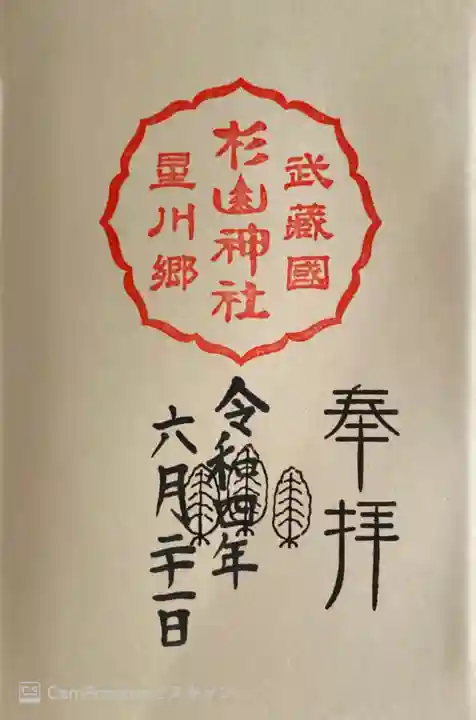 武藏國
杉山神社
星川郷
奉拝
令和四年
六月二十一日
CS CamScannerでスキャン